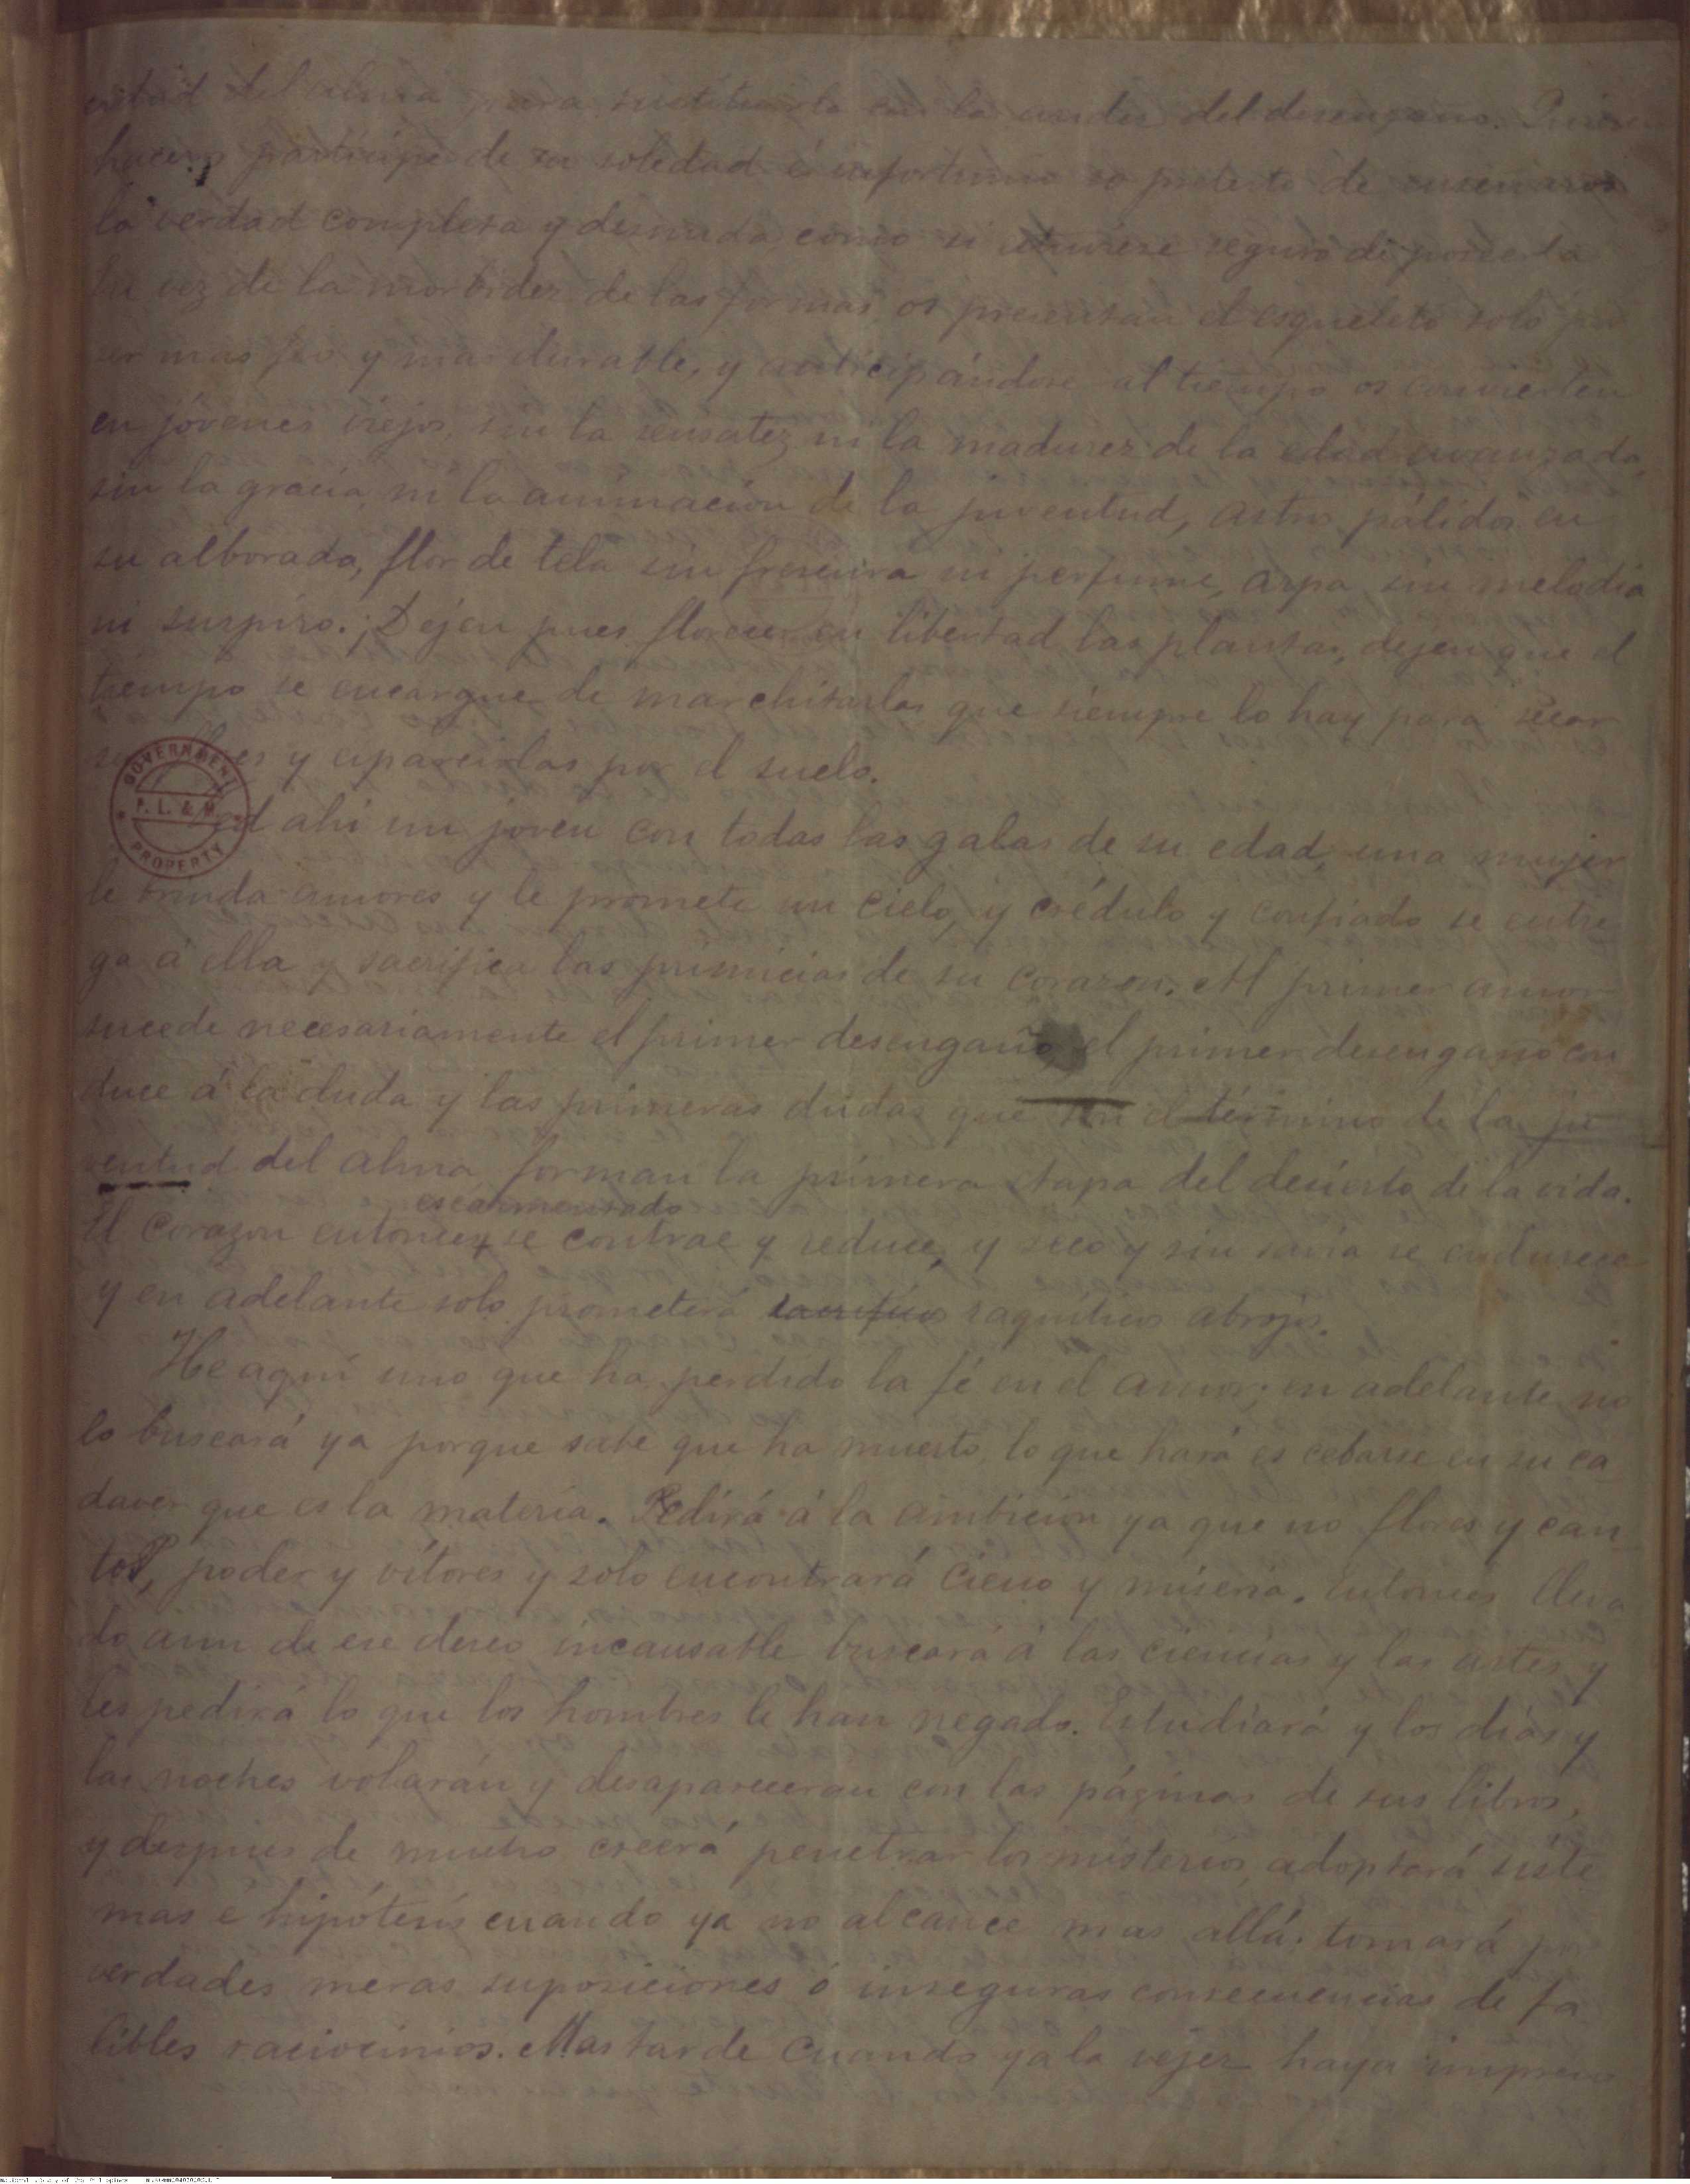 del alma para sustituirla con la del desengaño. Quieren
haceros partícipe de su soledad é infortunio so pretesto de enseñaros
la verdad completa y desnuda, como si estuviese seguro de poseerla
En vez de la morbidez de las formas os presentan el esqueleto solo por
ser mas feo y mas durable, y anticipándose al tiempo os convierten
en jóvenes viejos, sin la sensatez ni la madurez de la edad avanzada,
sin la gracia ni la animacion de la juventud, astros pálidos en
su alborada, flor de tela sin frescura ni perfume, arpa sin melodia
ni suspiro. ¡Dejen pues florecer en libertad las plantas, dejen que el
tiempo se encargue de marchitarlas que siempre lo hay para secar
y esparcirlas por el suelo.
Ved ahi un joven con todas las galas de su edad, una mujer
le brinda amores y le promete un cielo, y crédulo y confiado se entre
ga á ella y sacrifica las primicias de su corazon. Al primer amor
sucede necesariamente el primer desengaño, el primer desengaño con
duce á la duda y las primeras dudas que son el término de la ju
ventud del alma forman la primera etapa del desierto de la vida.
escarmentado
El corazon entonces se contrae y reduce, y seco y sin savia se endurece
y en adelante solo prometerá sacrificios raquíticos abrojos.
He aquí uno que ha perdido la fé en el amor; en adelante no
lo buscará ya porque sabe que ha muerto, lo que hará es cebarse en su ca
daver que es la materia. Pedirá á la ambicion ya que no flores y can
tos, poder y vítores y solo encontrará cieno y miseria. Entonces lleva
do aun de ese deseo incansable buscará á las ciencias y las artes y
les pedirá lo que los hombres le han negado. Estudiará y los dias y
las noches volarán y desapareceran con las páginas de sus libros,
y despues de mucho creerá penetrar los misterios, adoptará siste
mas e hipótesis cuando ya no alcance mas allá; tomará por
verdades meras suposiciones ó inseguras consecuencias de fa
libles raciocinios. Mas tarde cuando ya la vejez haya impreso
GOVERNMENT
P. L. & M.
PROPERTY